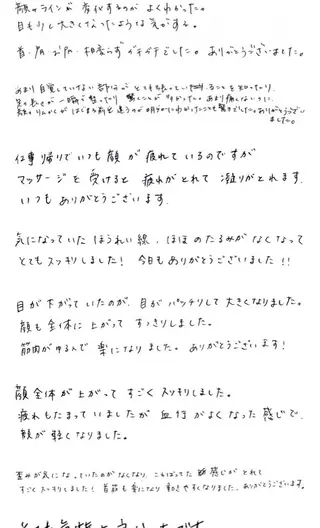 顔のラインが変化するのがよくわかった。
目も少し大きくなったような気がする。
首・肩・ 相変らずガチガチでした。ありがとうございました。
あまり自覚していない部分がとても張っていて
足の長さが一瞬で整ったり 驚くことが多かった。あまり痛くない
ました。
仕事帰りでいつも顔が疲れているのですが
マッサージを受けると疲れがとれて凝りがとれます。
いつもありがとうございます。
気になっていたほうれい線、ほほのたるみがなくなって
とてもスッキリしました！今日もありがとうございました！！
目が下がっていたのが、目がパッチリして大きくなりました。
顔も全体に上がってすっきりしました。
筋肉がゆるんで楽になりました。ありがとうございます！
顔全体が上がってすごくスッキリしました。
疲れもたまっていましたが血行がよくなった感じで、
顔が軽くなりました。
歪みが気になっていたのがなくなり、こわばってた 感じがとれて
すごくスッキリしました！首筋も楽になり動きやすくなりました。ありがとうございます。